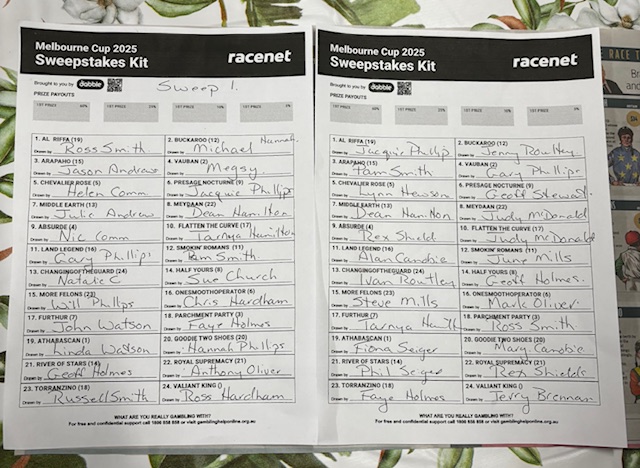 Melbourne Cup 2025
Sweepstakes Kit
racenet
Brought to you by dabble
Sweep 1.
PRIZE PAYOUTS
1. AL RIFFA (19)
Drawn by Ross Smith
2. BUCKAROO (12)
Drawn by Michael Hannah
3. ARAPAHO (15)
Drawn by Jason Andrew
4. VAUBAN (2)
Drawn by Megsy
5. CHEVALIER ROSE (5)
Drawn by Helen Comm
6. PRESAGE NOCTURNE (9)
Drawn by Jacquie Phillips
7. MIDDLE EARTH (13)
Drawn by Julie Andrew
8. MEYDAAN (22)
Drawn by Dean Hamilton
9. ABSURDE (4)
Drawn by Comm
10. FLATTEN THE CURVE (17)
Drawn by Tarnya Hamilton
11. LAND LEGEND (16)
Drawn by Gary Phillips
12. SMOKIN' ROMANS (11)
Drawn by Pam Smith
13. CHANGINGOFTHEGUARD (24)
Drawn by Natalie C
14. HALF YOURS (8)
Drawn by Sue Church
15. MORE FELONS (23)
Drawn by Will Phillps
16. ONESMOOTHOPERATOR (6)
Drawn by Chris Hardham
17. FURTHUR (7)
Drawn by John Watson
18. PARCHMENT PARTY (3)
Drawn by Faye Holmes
19. ATHABASCAN (1)
Drawn by Linda Watson
20. GOODIE TWO SHOES (20)
Drawn by Hannah Phillips
21. RIVER OF STARS (14)
Drawn by Geoff Holmes
22. ROYAL SUPREMACY (21)
Drawn by Anthony Oliver
23. TORRANZINO (18)
Drawn by Russell Smith
24. VALIANT KING ()
Drawn by Ross Hardham
WHAT ARE YOU REALLY GAMBLING WITH?
For free and confidential support call 1800 858 858 or visit gamblinghelponline.org.au
Melbourne Cup 2025
Sweepstakes Kit
racenet
Brought to you by dabble
PRIZE PAYOUTS
1. AL RIFFA (19)
Drawn by Jacquie Phillip
2. BUCKAROO (12)
Drawn by Jenny Rowtley
3. ARAPAHO (15)
Drawn by Pam Smith
4. VAUBAN (2)
Drawn by Gary Phillips
5. CHEVALIER ROSE (5)
Drawn by Lynn Hewson
6. PRESAGE NOCTURNE (9)
Drawn by Geoff Stewart
7. MIDDLE EARTH (13)
Drawn by Dean Hamilton
8. MEYDAAN (22)
Drawn by Judy McDonald
9. ABSURDE (4)
Drawn by Rex Shield
10. FLATTEN THE CURVE (17)
Drawn by Judy McDonald
11. LAND LEGEND (16)
Drawn by Alan Canobie
12. SMOKIN' ROMANS (11)
Drawn by June Mills
13. CHANGINGOFTHEGUARD (24)
Drawn by Ivan Rowtley
14. HALF YOURS (8)
Drawn by Geoff Holmes.
15. MORE FELONS (23)
Drawn by Steve Mills
16. ONESMOOTHOPERATOR (6)
Drawn by Mark Oliver
17. FURTHUR (7)
Drawn by Tarnya
18. PARCHMENT PARTY (3)
Drawn by Ross Smith
19. ATHABASCAN (1)
Drawn by Fiona Seiger
20. GOODIE TWO SHOES (20)
Drawn by Mary Canobie
21. RIVER OF STARS (14)
Drawn by Phil Seiger
22. ROYAL SUPREMACY (21)
Drawn by Rex Shields
23. TORRANZINO (18)
Drawn by Faye Holmes
24. VALIANT KING ()
Drawn by Jerry Brennan
WHAT ARE YOU REALLY GAMBLING WITH?
For free and confidential support call 1800 858 858 or visit gamblinghelponline.org.au